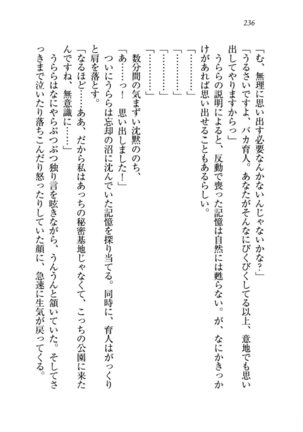 236
「む、無理に思い出す必要なんかないんじゃないかな?」
「うるさいですよ、バカ育人。あなたがそんなにびくびくしてる以上、意地でも思い
出してやりますからっ」
うららの説明によると、反動で喪った記憶は自然には甦らない。が、なにかきっか
けがあれば思い出せることもあるらしい。
「…………」
「…………」
「…………」
数分間の気まずい沈黙ののち、
「あ……っ! 思い出しました!」
ついにうららは忘却の沼に沈んでいた記憶を探り当てる。同時に、育人はがっくり
と肩を落とす。
「なるほど……ああ、だから私はあっちの秘密基地じゃなくて、こっちの公園に来た
んですね、無意識に……」
うららはなにやらぶつぶつ独り言を呟きながら、うんうんと頷いていた。そしてさ
っきまで泣いたり落ちこんだり怒ったりしていた顔に、急速に生気が戻ってくる。